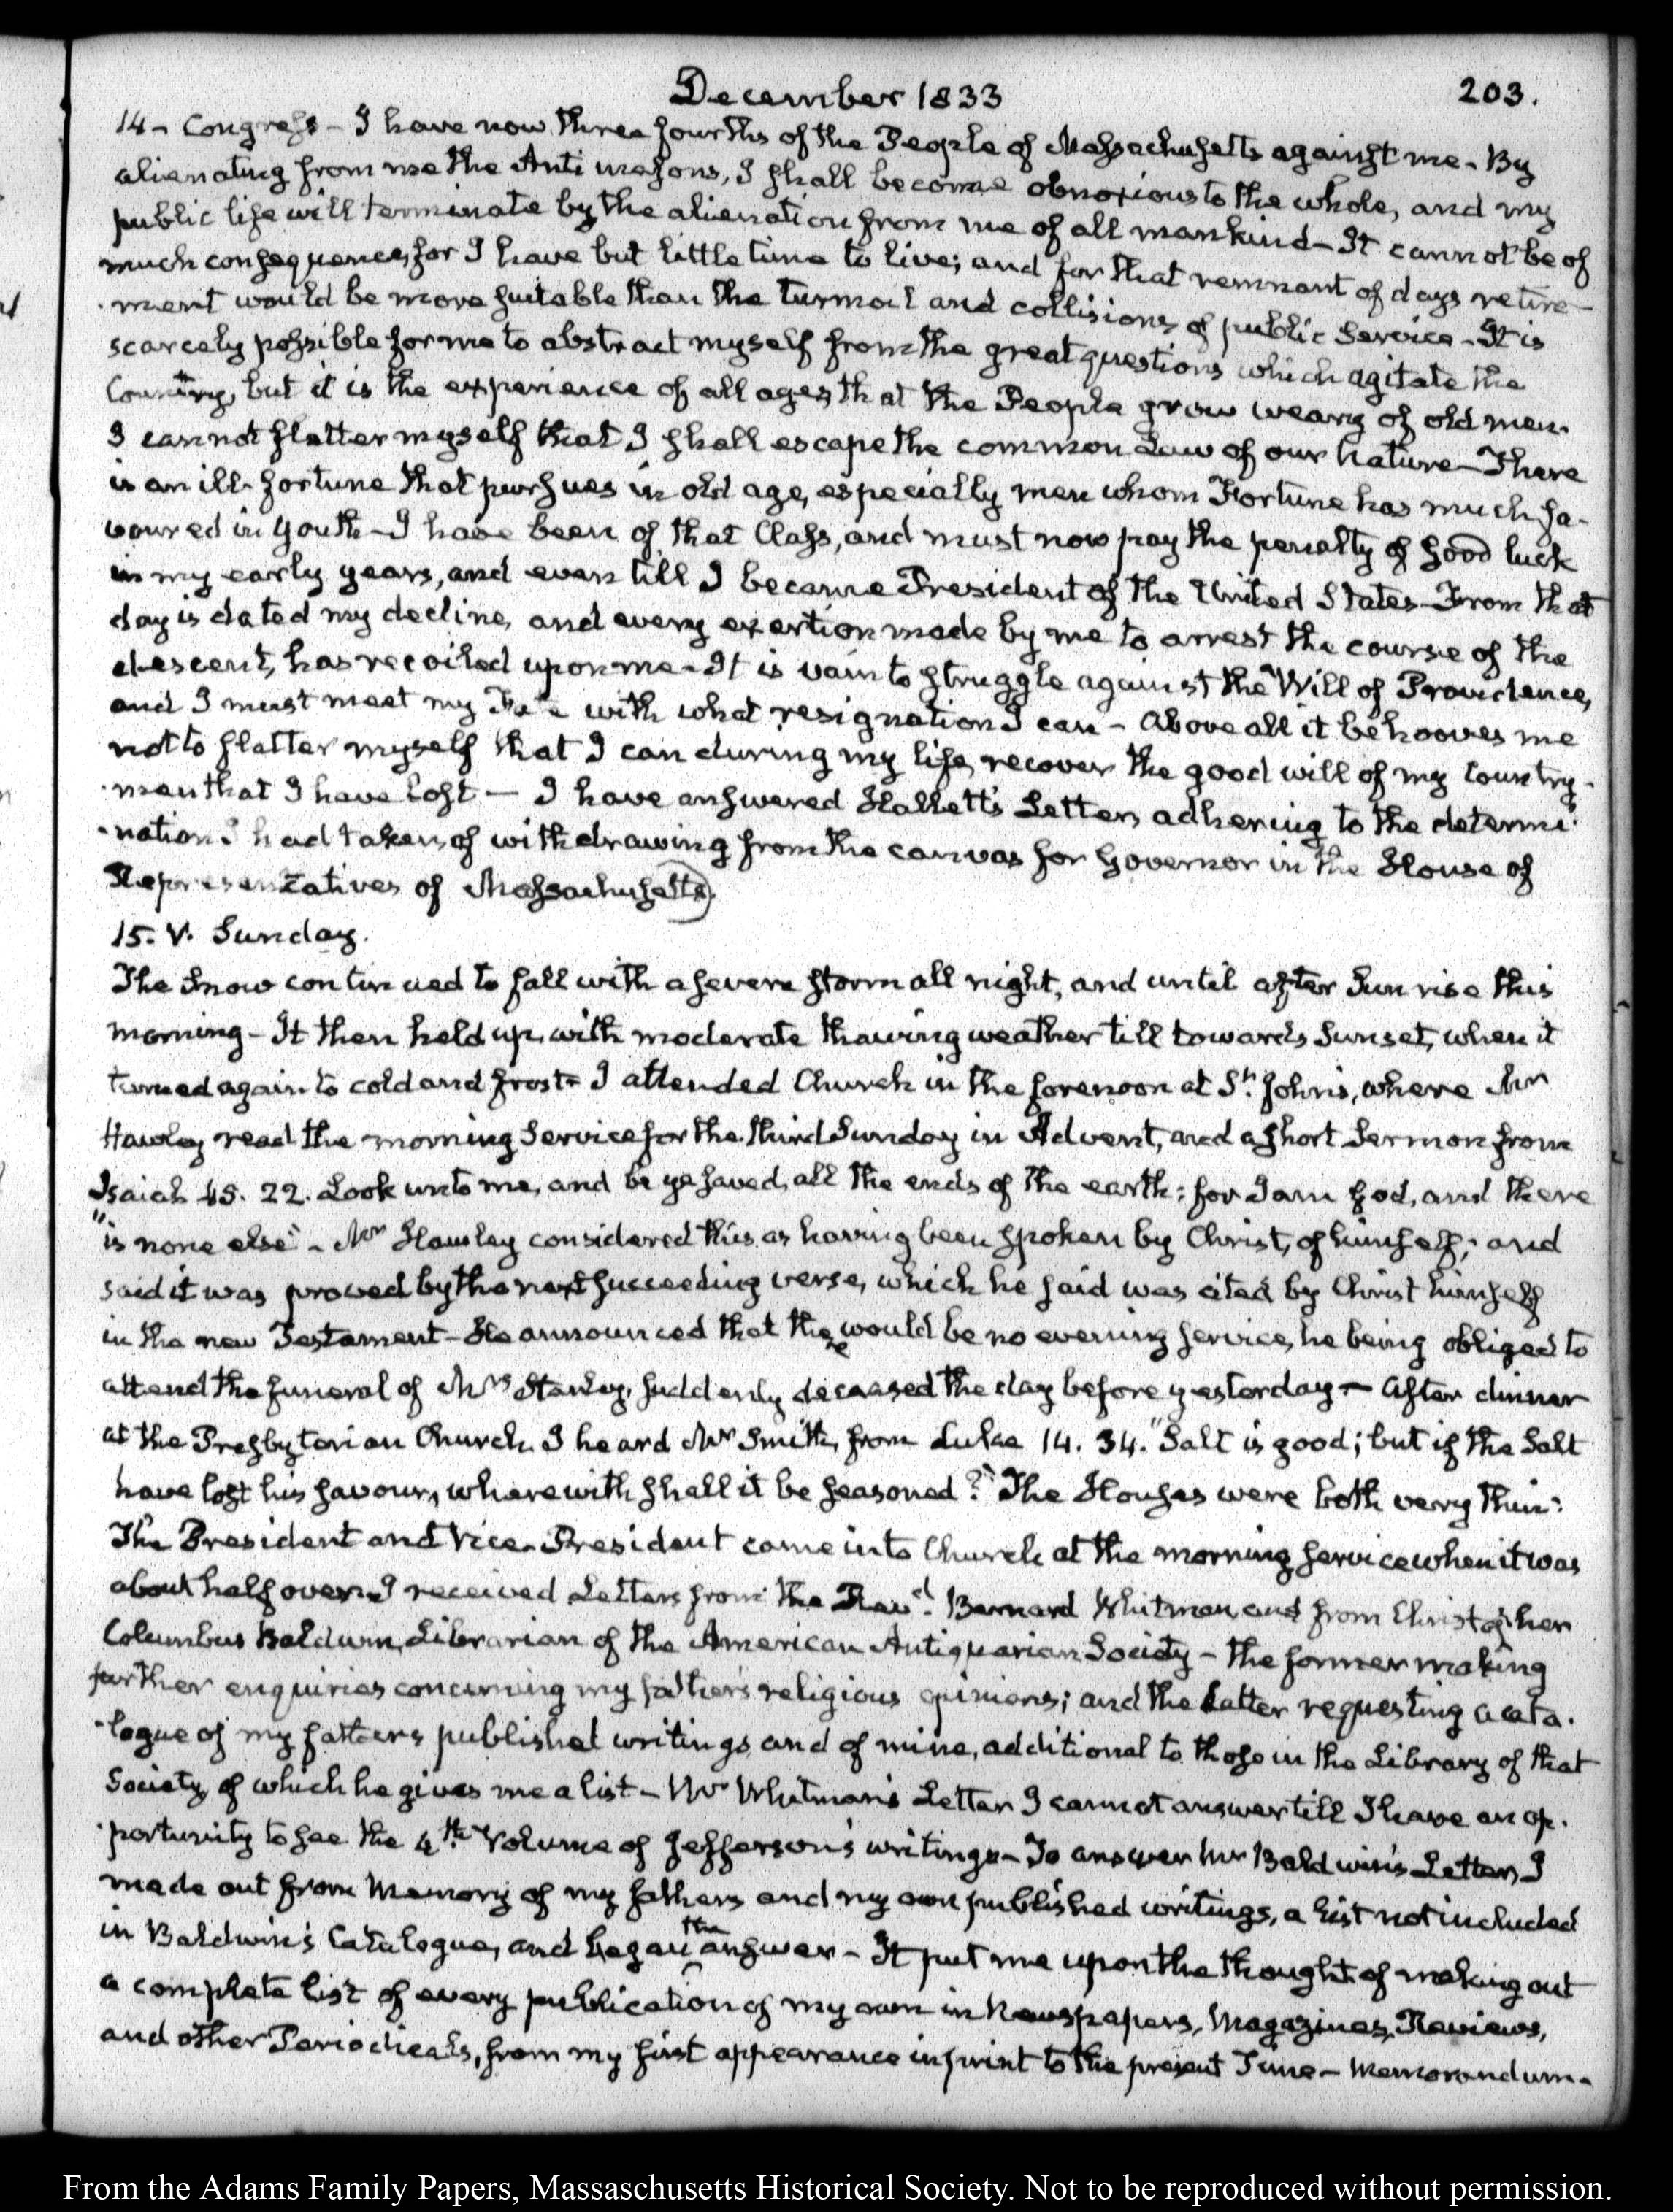 December 1833
203.
14 - Congress - I have now three fourths of the People of Massachusetts against me - By
alienating from me the Anti masons, I shall become obnoxious to the whole, and my
public life will terminate by the alienation from me of all mankind - It cannot be of
much consequence, for I have but little time to live; and for that remnant of days retire-
-ment would be more suitable than the turmoil and collisions of public Service - It is
scarcely possible for me to abstract myself from the great questions which agitate the
Country, but it is the experience of all ages that the People grow weary of old men.
I cannot flatter myself that I shall escape the common Law of our Nature - There
is an ill-fortune that pursues in old age, especially men whom Fortune has much fa-
voured in Youth - I have been of that Class, and must now pay the penalty of good luck
in my early years, and even till I became President of the United States - From that
day is dated my decline, and every exertion made by me to arrest the course of the
descent, has recoiled upon me - It is vain to struggle against the Will of Providence,
and I must meet my Fate with what resignation I can - Above all it behooves me
not to flatter myself that I can during my life, recover the good will of my Country-
-men that I have lost — I have answered Hallett's Letter, adhering to the determi-
-nation I had taken, of withdrawing from the canvas for Governor in the House of
Representatives of Massachusetts.
15. V. Sunday.
The Snow continued to fall with a severe storm all night, and until after Sun rise this
morning - It then held up, with moderate thawing weather till towards Sunset, when it
turned again to cold and frost - I attended Church in the forenoon at St. John's, where Mr
Hawley read the morning Service for the third Sunday in Advent, and a short Sermon from
Isaiah 45. 22. Look unto me, and be ye saved, all the ends of the earth: for I am God, and there
"is none else" - Mr Hawley considered this as having been spoken by Christ, of himself; and
said it was proved by the next succeeding verse, which he said was cited by Christ himself
in the new Testament - He announced that there would be no evening service, he being obliged to
attend the funeral of Mrs Stanley, suddenly deceased the day before yesterday - After dinner
at the Presbyterian Church, I heard Mr Smith, from Luke 14. 34. "Salt is good; but if the Salt
have lost his savour, wherewith shall it be seasoned?" The Houses were both very thin:
The President and Vice-President came into Church at the morning service when it was
about half over. I received Letters from the Revd. Bernard Whitman, and from Christopher
Columbus Baldwin, Librarian of the American Antiquarian Society - the former making
further enquiries concerning my father's religious opinions; and the latter requesting a cata-
-logue of my fathers published writings, and of mine, additional to those in the Library of that
Society, of which he gives me a list - Mr Whitman's Letter I cannot answer till I have an op-
-portunity to see the 4th. Volume of Jefferson's writings - To answer Mr Baldwin's Letter, I
made out from Memory of my fathers and my own published writings, a list not included
in Baldwin's Catalogue, and began the answer - It put me upon the thought of making out
a complete list of every publication of my own in Newspapers, Magazines, Reviews,
and other Periodicals, from my first appearance in print to the present Time - Memorandum.
From the Adams Family Papers, Massaschusetts Historical Society. Not to be reproduced without permission.